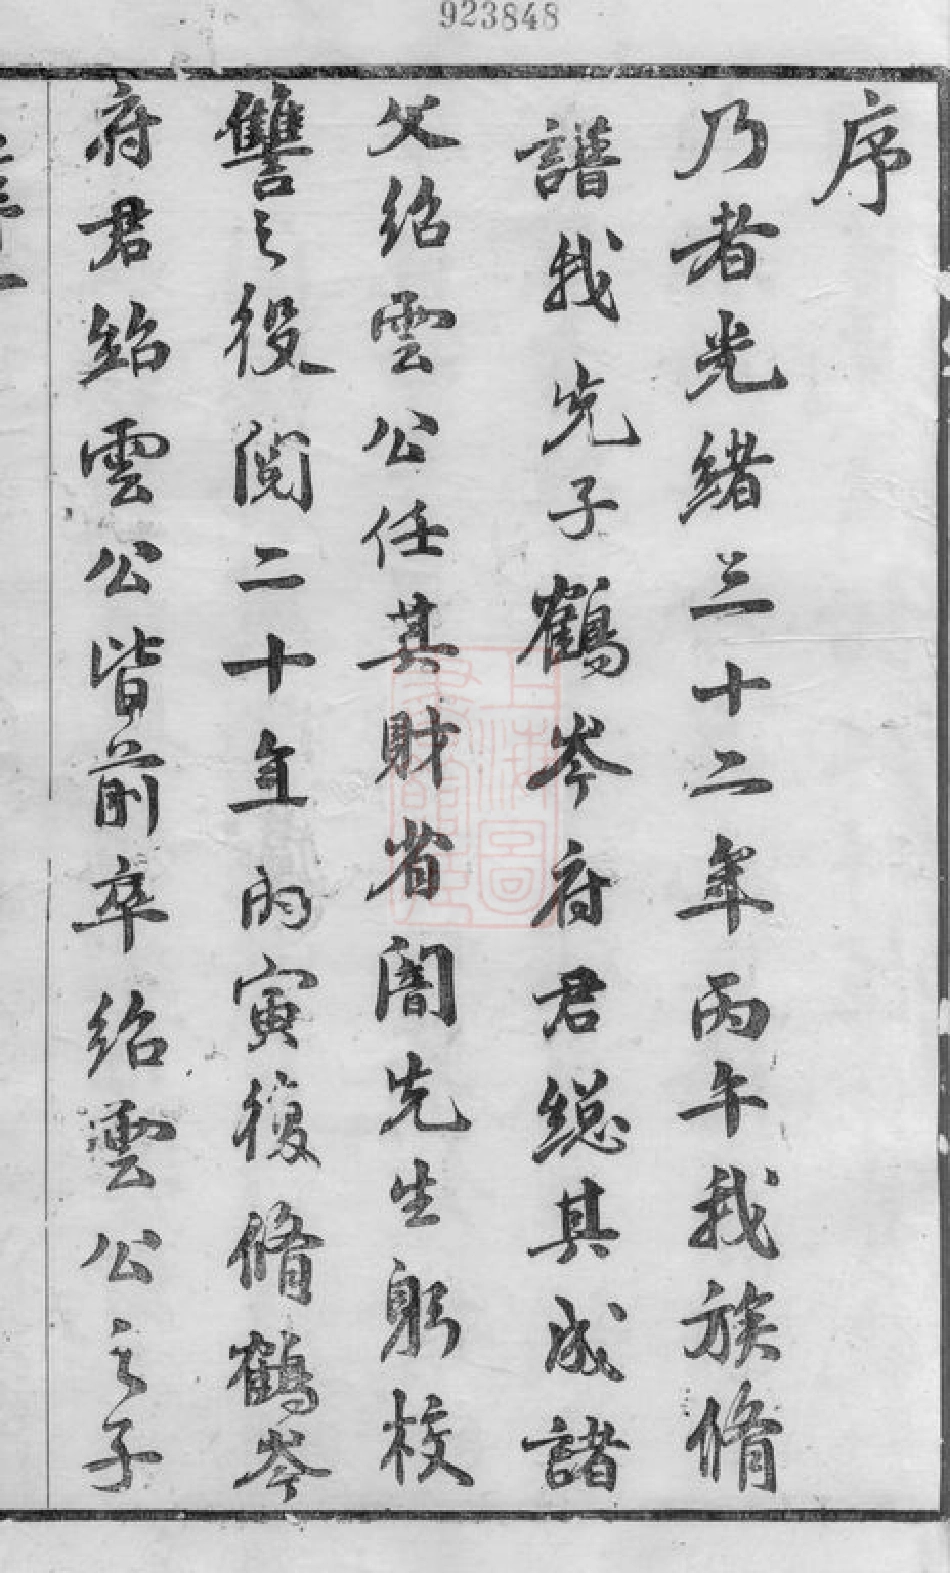 923848
序
乃者光緒三十二年丙午我族脩
譜我先子鶴岑府君總其成諸
父紹雲公任其財省闇先生躬校
讐之役閱二十年丙寅復脩鶴岑
府君紹雲公皆前卒紹雲公之子
上海圖
書館藏